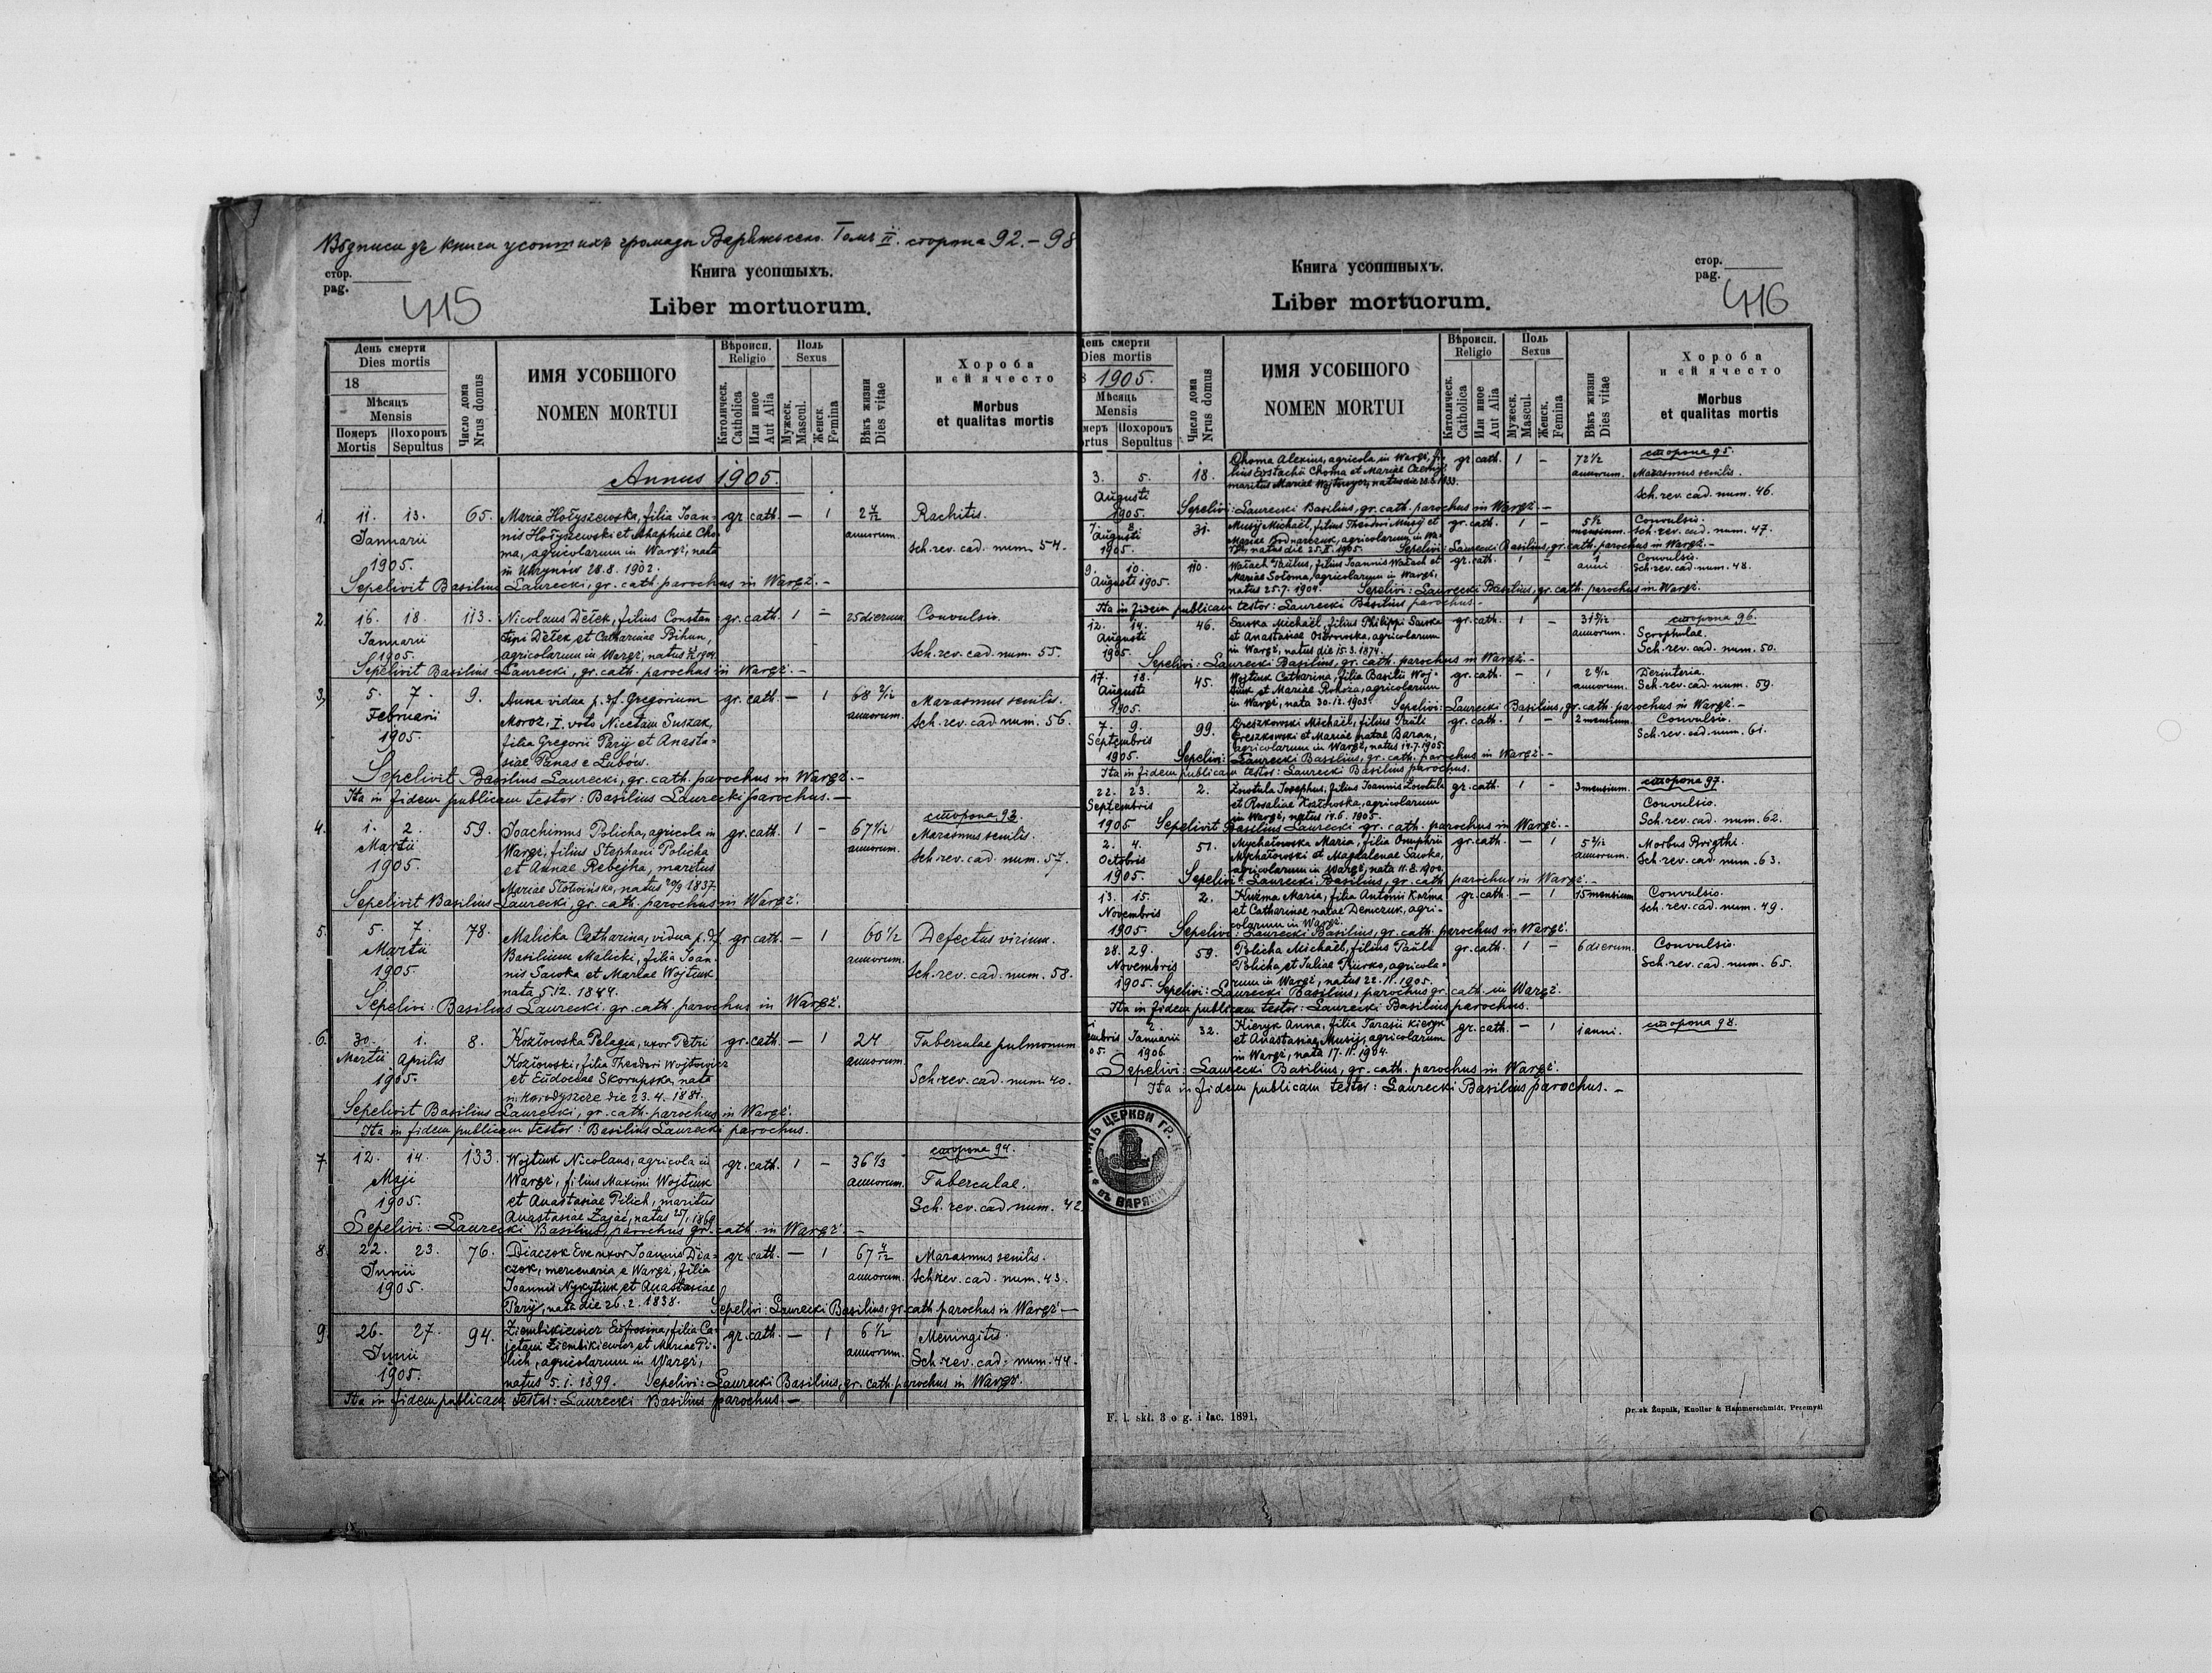 Вôдписи зъ книги усопшихъ громади Варяжъского. Томъ II. сторона 92.–98
стор.
pag.
415
Книга усопшыхъ.
Liber mortuorum.
День смерти
Dies mortis
18
Мѣсяцъ
Mensis
Померъ Похоронъ
Mortis Sepultus
Число дома
Nrus domus
ИМЯ УСОБШОГО
NOMEN MORTUI
Вѣроисп.
Religio
Католическ.
Catholica
Или иное
Aut Alia
Поль
Sexus
Мужеск.
Mascul.
Женск.
Femina
Вѣкъ жизни
Dies vitae
Хороба
и ей ячесто
Morbus
et qualitas mortis
Annus 1905.
1. 11. 13. 65. Maria Hołyszewska, filia Ioan- gr. cath. — 1 2 4/12 Rachitis.
Ianuarii nis Hołyszewski et Ahaphiae Cho- annorum.
ma, agricolarum in Waręż, nata sch. rev. cad. num. 54.
1905. in Uhrynów 28.8. 1902.
Sepelivit Basilius Laurecki, gr. cath. parochus in Waręż. —
2. 16. 18. 113. Nicolaus Dełek, filius Constan- gr. cath. 1 — 25 dierum. Convulsio.
Ianuarii tini Dełek et Catharinae Bihun,
1905. agricolarum in Waręż, natus Sch. rev. cad. num. 55.
Sepelivit Basilius Laurecki, gr. cath. parochus in Waręż. —
3. 5. 7. 9. Anna vidua p. df. Gregorium gr. cath. — 1 68 2/12 Marasmus senilis.
Februarii Moroz, I. voto Nicetam Suszak, annorum. Sch. rev. cad. num. 56.
1905. filia Gregorii Paryj et Anasta-
siae Panas e Łubów.
Sepelivit Basilius Laurecki, gr. cath. parochus in Waręż. —
Ita in fidem publicam testor: Basilius Laurecki parochus. —
сторона 93.
4. 1. 2. 59. Joachimus Policha, agricola in gr. cath. 1 — 67 6/12 Marasmus senilis.
Martii Waręż, filius Stephani Policha annorum.
1905. et Annae Rebejha, maritus Sch. rev. cad. num. 57.
Mariae Słotwińska, natus 20/9 1837.
Sepelivit Basilius Laurecki, gr. cath. parochus in Waręż.
5. 5. 7. 78. Malicka Catharina, vidua p. df. gr. cath. — 1 60 1/2 Defectus virium.
Martii Basilium Malicki, filia Ioan- annorum.
1905. nis Sawka et Mariae Wojtiuk Sch. rev. cad. num. 58.
nata 5.12. 1844.
Sepelivi: Basilius Laurecki gr. cath. parochus in Waręż.
6. 30. 1. 8. Kozłowska Pelagia, uxor Petri gr. cath. — 1 24 Tuberculae pulmonum
Martii Aprilis Kozłowski, filia Theodori Wojtowicz annorum.
1905. et Eudociae Skorupska, nata Sch. rev. cad. num. 40.
in Horodyszcze die 23. 4. 1881.
Sepelivit Basilius Laurecki, gr. cath. parochus in Waręż.
Ita in fidem publicam testor: Basilius Laurecki parochus.
сторона 94.
7. 12. 14. 133. Wojtiuk Nicolaus, agricola in gr. cath. 1 — 36 1/3
Maji Waręż, filius Maximi Wojtiuk annorum. Tuberculae.
1905. et Anastasiae Pilich, maritus Sch. rev. cad. num. 42.
Anastasiae Zając, natus 25/1 1869
Sepelivi: Laurecki Basilius, parochus gr. cath. in Waręż. —
8. 22. 23. 76. Diaczok Eva uxor Ioannis Dia- gr. cath. — 1 67 4/12 Marasmus senilis.
Junii czok, mercenaria e Waręż, filia annorum. Sch. rev. cad. num. 43.
1905. Joannis Nykytiuk et Anastasiae
Paryj, nata die 26. 2. 1838. Sepelivi: Laurecki Basilius, gr. cath. parochus in Waręż —
9. 26. 27. 94. Ziembikiewicz Eufrosina, filia Ca- gr. cath. — 1 6 1/2 Meningitis.
Junii jetani Ziembikiewicz et Mariae Pi- annorum.
lich, agricolarum in Waręż, Sch. rev. cad. num. 44.
1905. natus 5. 1. 1899. Sepelivi: Laurecki Basilius, gr. cath. parochus in Waręż.
Ita in fidem publicam testor: Laurecki Basilius parochus. —
Книга усопшныхъ.
Liber mortuorum.
стор.
pag.
416
День смерти
Dies mortis
1905.
Мѣсяць
Mensis
Похоронъ
Sepultus
Число дома
Nrus domus
ИМЯ УСОБШОГО
NOMEN MORTUI
Вѣроисп.
Religio
Католическ.
Catholica
Или иное
Aut Alia
Поль
Sexus
Мужеск.
Mascul.
Женск.
Femina
Вѣкъ жизни
Dies vitae
Хороба
и ей ячесто
Morbus
et qualitas mortis
сторона 95.
3. 5. 18. Choma Alexius, agricola in Waręż, fi- gr. cath. 1 — 72 1/2
lius Eustachii Choma et Mariae annorum. Marasmus senilis.
maritus Mariae
Augusti Sch. rev. cad. num. 46.
1905. Sepelivi: Laurecki Basilius, gr. cath. parochus in Waręż —
7. 8. 31. Musij Michaël, filius Theodori Musij et gr. cath. 1 — 5 1/2 Convulsio.
Augusti Mariae Bodnarczuk, agricolarum in Wa- mensium. Sch. rev. cad. num. 47.
1905. ręż, natus die 25. II. 1905. Sepelivi: Laurecki Basilius, gr. cath. parochus in Waręż. —
9. 10. 110. Wałach Paulus, filius Ioannis Wałach et gr. cath. 1 — 1 Convulsio.
Augusti 1905. Mariae Sołoma, agricolarum in Waręż, anni Sch. rev. cad. num. 48.
natus 25.7. 1904. Sepelivi: Laurecki Basilius, gr. cath. parochus in Waręż.
Ita in fidem publicam testor: Laurecki Basilius parochus. —
сторона 96.
12. 14. 46. Sawka Michaël, filius Philippi Sawka gr. cath. 1 — 31 5/12
Augusti et Anastasiae Ostrowska, agricolarum annorum. Scrophulae.
1905. in Waręż, natus die 15. 3. 1874. Sch. rev. cad. num. 50.
Sepelivi: Laurecki Basilius, gr. cath. parochus in Waręż —
17. 18. 45. Wojtiuk Catharina, filia Basilii Woj- gr. cath. — 1 2 8/12 Dezinteria.
Augusti tiuk et Mariae Rohoza, agricolarum annorum. Sch. rev. cad. num. 59.
1905. in Waręż, nata 30. 12. 1903. Sepelivi: Laurecki Basilius, gr. cath. parochus in Waręż. —
7. 9. 99. Greszkowski Michaël, filius Pauli gr. cath. 1 — 2 mensium. Convulsio.
Septembris Greszkowski et Mariae natae Baran, Sch. rev. cad. num. 61.
agricolarum in Waręż, natus 14. 7. 1905.
1905. Sepelivi: Laurecki Basilius, gr. cath. parochus in Waręż. —
Ita in fidem publicam testor: Laurecki Basilius parochus.
сторона 97.
22. 23. 2. Zowtula Iosephus, filius Ioannis Zowtula gr. cath. 1 — 3 mensium.
Septembris et Rosaliae Kozłowska, agricolarum Convulsio.
in Waręż, natus 14. 6. 1905. Sch. rev. cad. num. 62.
1905 Sepelivit Basilius Laurecki gr. cath. parochus in Waręż. —
2. 4. 51. Mychałowska Maria, filia Onuphrii gr. cath. — 1 5 2/12 Morbus Brigthi.
Octobris Mychałowski et Magdalenae Sawka, annorum. Sch. rev. cad. num. 63.
agricolarum in Waręż, nata 11. 8. 1900.
1905. Sepelivi: Laurecki Basilius, gr. cath. parochus in Waręż. —
13. 15. 2. Kuźma Maria, filia Antonii Kuźma gr. cath. — 1 15 mensium Convulsio.
Novembris et Catharinae natae Demczuk, agri- Sch. rev. cad. num. 49.
colarum in Waręż.
1905. Sepelivi: Laurecki Basilius, gr. cath. parochus in Waręż.
28. 29. 59. Policha Michaël, filius Pauli gr. cath. 1 — 6 dierum. Convulsio.
Novembris Policha et Iuliae Kurko, agricola- Sch. rev. cad. num. 65.
1905. rum in Waręż, natus 22. 11. 1905.
Sepelivi: Laurecki Basilius, parochus gr. cath. in Waręż.
Ita in fidem publicam testor: Laurecki Basilius parochus.
2. 32. Kieryk Anna, filia Tarasii Kieryk gr. cath. — 1 1 anni. сторона 98.
Ianuarii et Anastasiae Musij, agricolarum
1906. in Waręż, nata 17. 11. 1904.
Sepelivi: Laurecki Basilius, gr. cath. parochus in Waręż.
Ita in fidem publicam testor: Laurecki Basilius parochus. —
ЦЕРКВИ ГР. К
въ ВАРЯЖ
F. l. skł. 3 o g. i łac. 1891.
Żupnik, Knoller & Hammerschmidt, Przemyśl